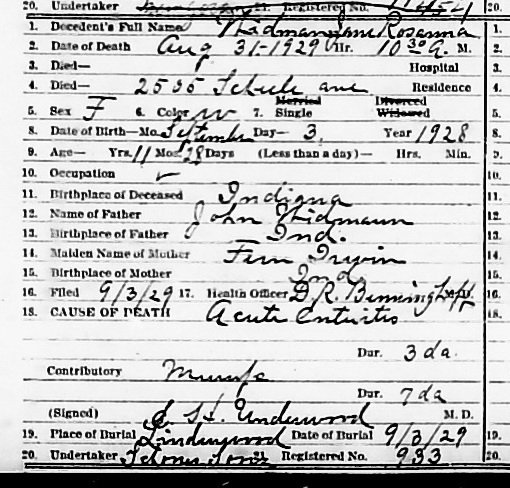 20. Undertaker 21. Registered No. 20.
1. Decedent's Full Name Widmann Jane Rosanna 1.
2. Date of Death Aug 31-1929 Hr. 10 30 a. M. 2.
3. Died— Hospital 3.
4. Died— 2535 Ave Residence 4.
5. Sex F 6. Color w 7. Married Single Divorced Widowed 5.
8. Date of Birth—Mo. September Day— 3, Year 1928 8.
9. Age— Yrs. 11 Mos. 28 Days (Less than a day)— Hrs. Min. 9.
10. Occupation ✓ 10.
11. Birthplace of Deceased Indiana 11.
12. Name of Father John Widmann 12.
13. Birthplace of Father Ind. 13.
14. Maiden Name of Mother Fern Irwin 14.
15. Birthplace of Mother Ind 15.
16. Filed 9/3/29 17. Health Officer D.R. 16.
18. CAUSE OF DEATH Acute Enteritis 18.
Dur. 3 da
Contributory Mumps
Dur. 7 da
(Signed) Underwood M. D.
19. Place of Burial Lindenwood Date of Burial 9/3/29 19.
20. Undertaker 21. Registered No. 933 20.